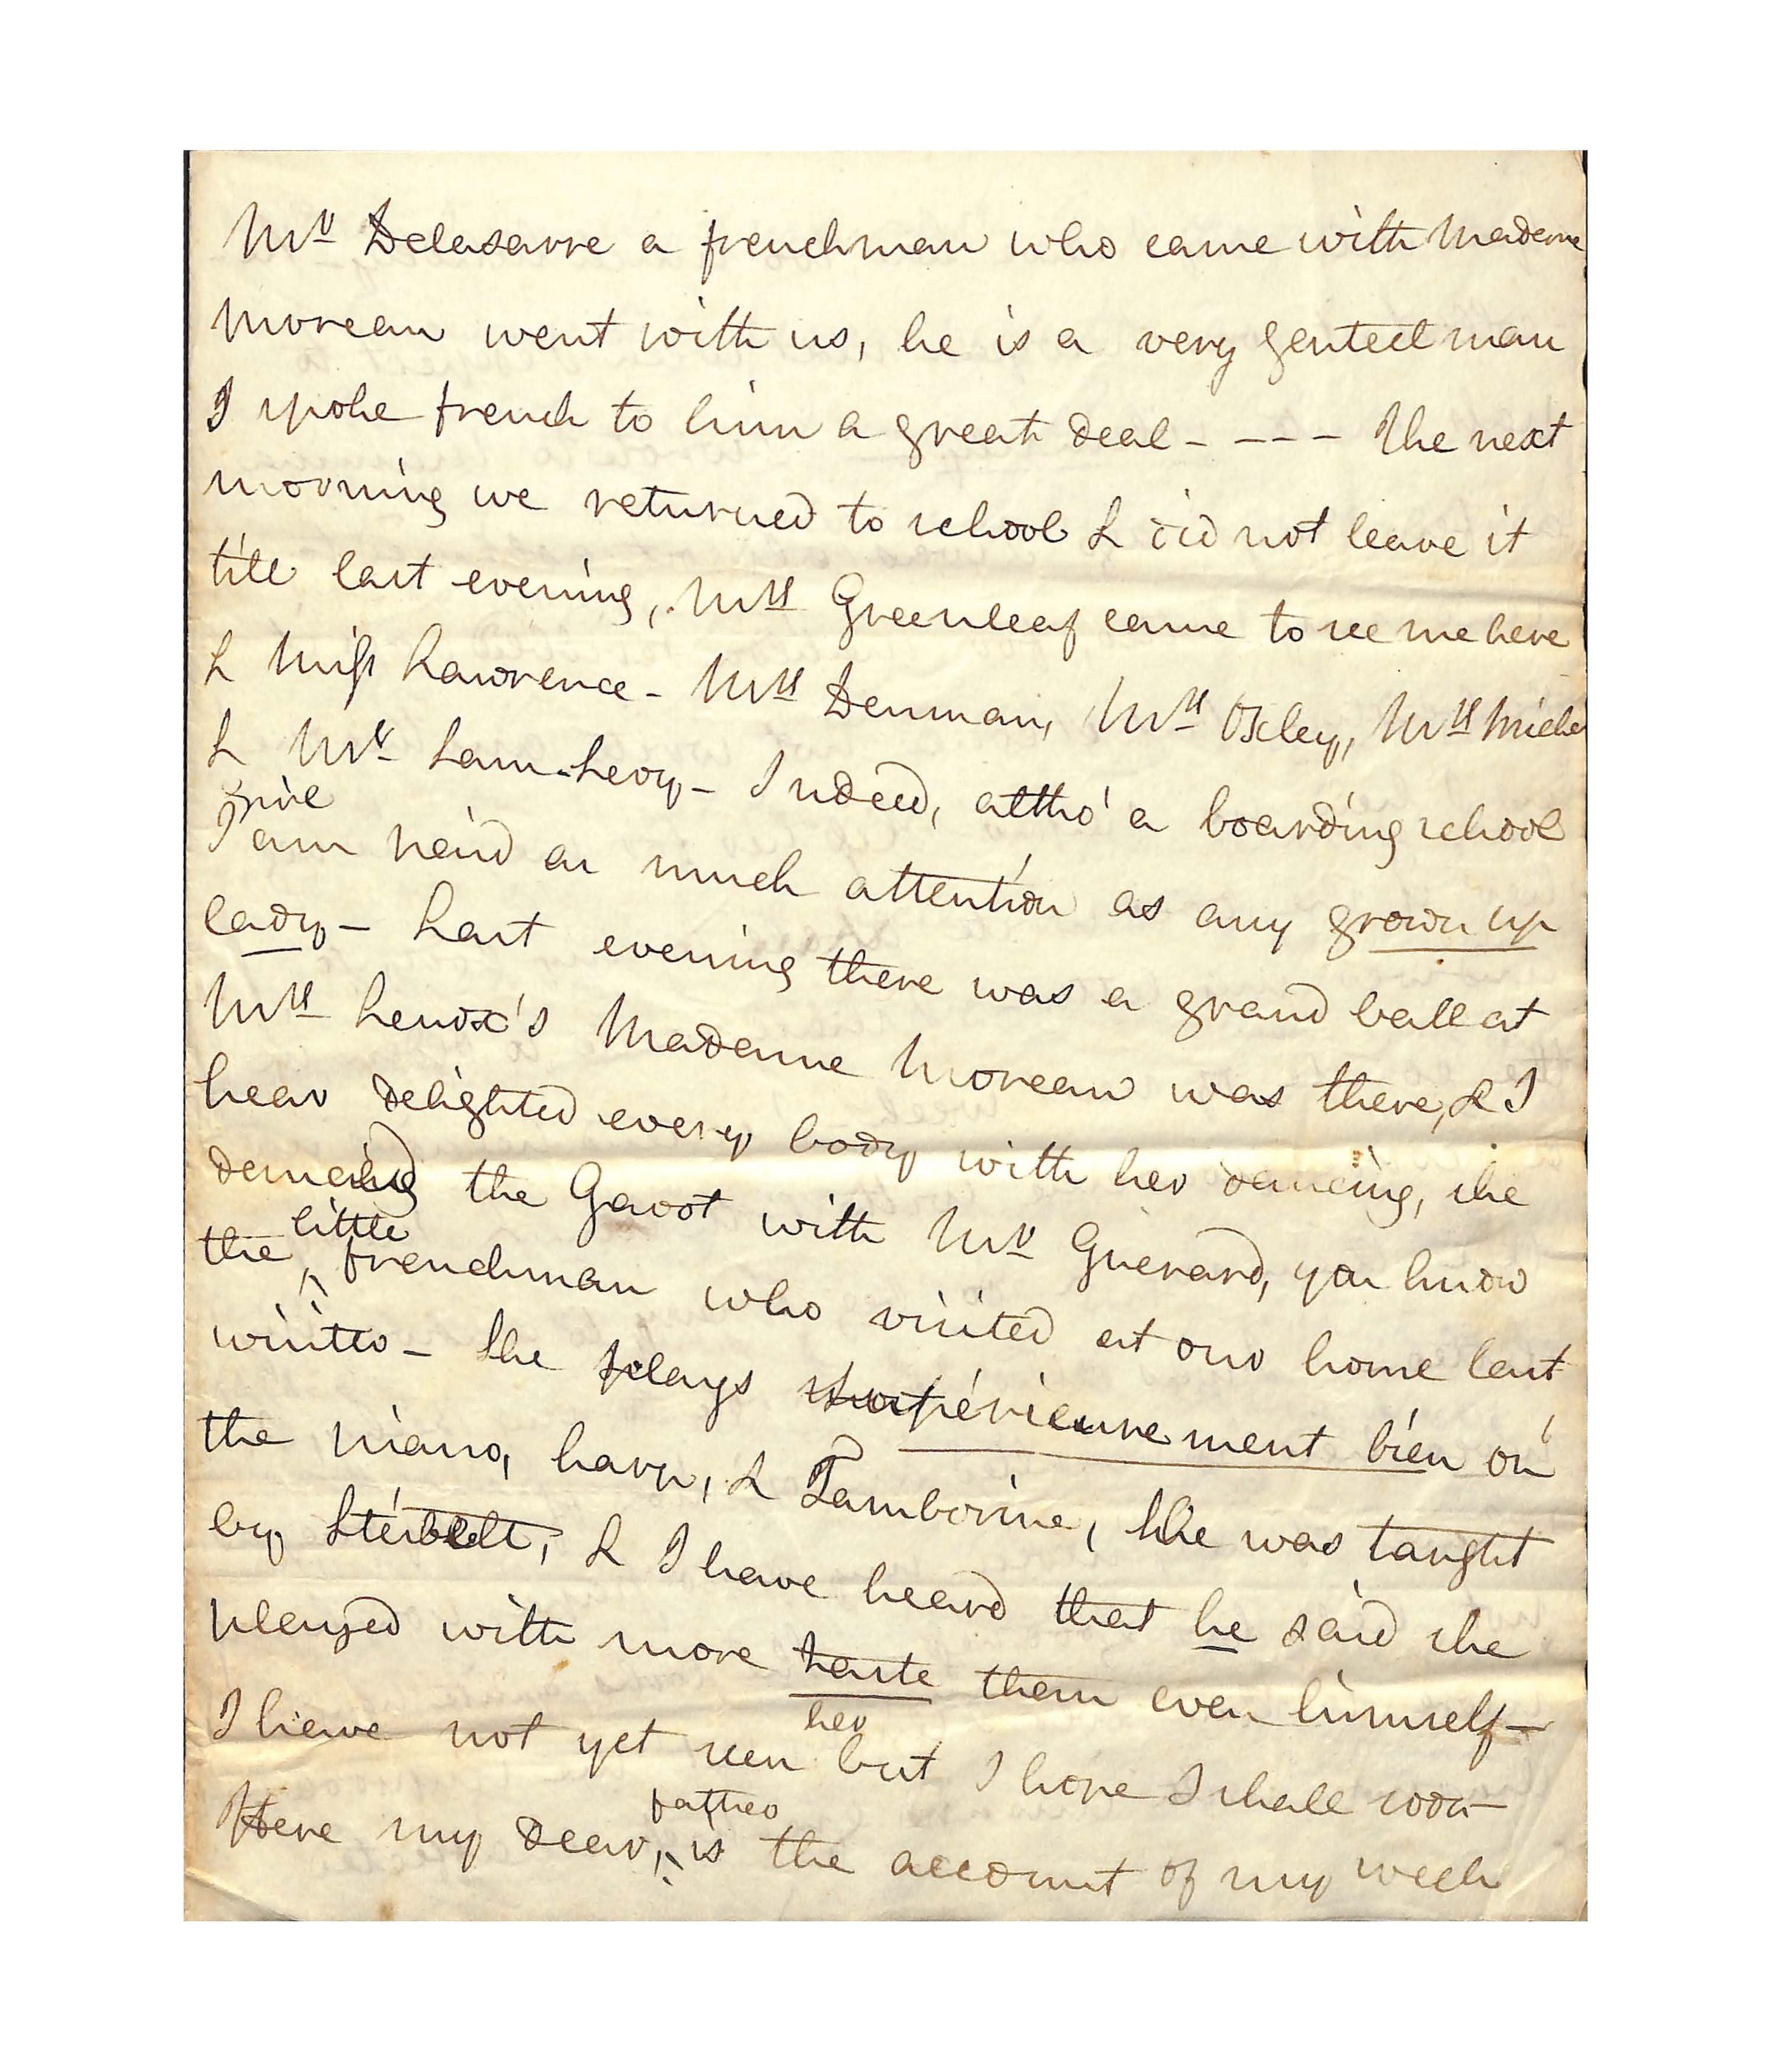 Mr Delasarre a frenchman who came with Madame
Moreau went with us, he is a very genteel man
I spoke french to him a great deal - - - - The next
morning we returned to school & did not leave it
till last evening, Mrs Greenleaf came to see me here
& Miss Lawrence - Mrs Denman, Mrs Oxley, Mrs
& Mr Sam. Levy - Indeed, altho' a boarding school
girl
I am paid as much attention as any grown up
lady - Last evening there was a grand ball at
Mrs Lenox's Madame Moreau was there, & I
hear delighted every body with her dancing, she
danced the Gavot with Mr Guerard, you know
the little frenchman who visited at our home last
winter - She plays supérieurement bien on
the piano, harp, & Tamborine, She was taught
by Steibelt, & I have heard that he said she
played with more taste them even himself -
I have not yet seen her but I hope I shall soon -
Here my dear, father is the account of my week